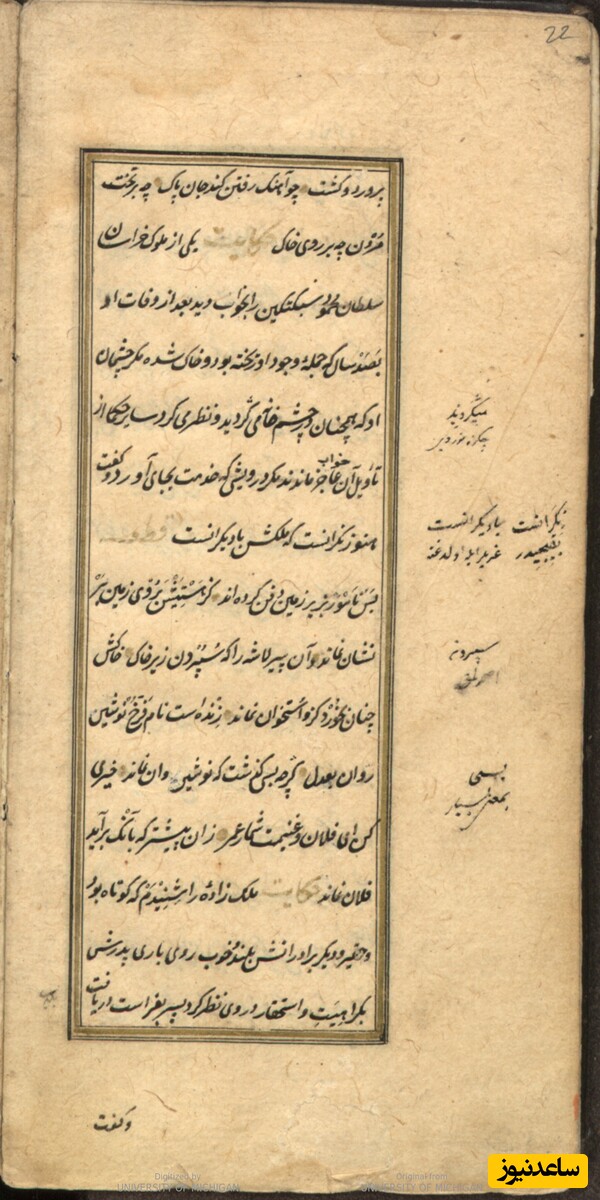 22
پرورد و کشت چو آهنک رفتن کند جان پاک چه بر تخت
مردن چه بر روی خاک حکایت یکی از ملوک خراسان
سلطان محمود سبکتکین را بخواب دید بعد از وفات او
بصد سال که جملهٔ وجود او ریخته بود و خاک شده مکر چشمان
او که همچنان در چشم خانه می کردید و نظر می کرد سایر حکما از
تاویل آن خواب عاجز ماندند مکر درویشی که خدمت بجای آورد و کفت
هنوز نکرانست که ملکش با دیکرانست
بس نامور بزیر زمین دفن کرده اند کز هستیش بروی زمین بر
نشان نماند وان پیر لاشه را که سپردن زیر خاک خاکش
چنان بخورد کزو استخوان نماند زنده است نام فرخ نوشین
روان بعدل کرچه بسی کذشت که نوشین روان نماند خیری
کن ای فلان و غنیمت شمار عمر زان پیشتر که بانک برآید
فلان نماند حکایت ملک زادهٔ را شنیدم که کوتاه بود
و حقیر و دیکر برادرانش بلند و خوب روی باری پدرش
بکراهیت و استحقار در وی نظر کرد پسر بفراست دریافت
و کفت
میکردید
نکرانست با دیکرانست
سپردند
بسی
بمعنی بسیار
Digitized by
UNIVERSITY OF MICHIGAN
Original from
UNIVERSITY OF MICHIGAN
ساعدنیوز